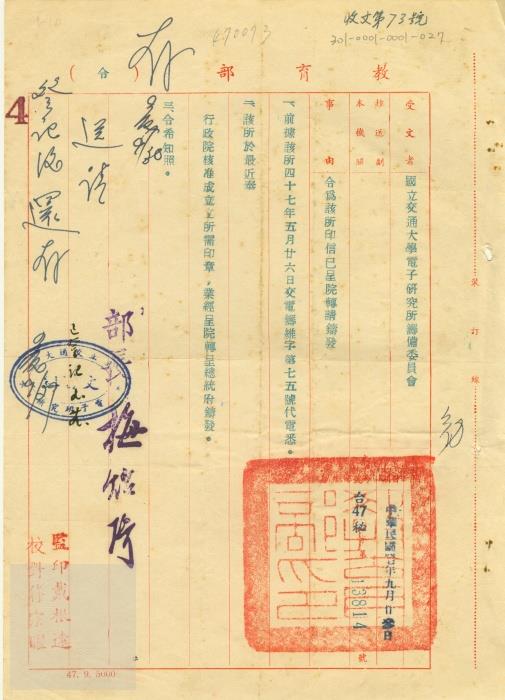 收文第73號
301-0001-0001-027
470073
存
教育部（令）
受文者
國立交通大學電子研究所籌備委員會
抄送副本機關
事由
令為該所印信已呈院轉請鑄發
一、前據該所四十七年五月廿六日交電籌維字第七五號代電悉。
二、該所於最近奉
行政院核准成立，所需印章，業經呈院轉呈總統府鑄發。
三、合希知照。
送請
登記後還存
4
部長 梅貽琦
中華民國47年九月廿 日
台47
13814
號
裝訂線
監印戴根達
校對
47. 9. 5000